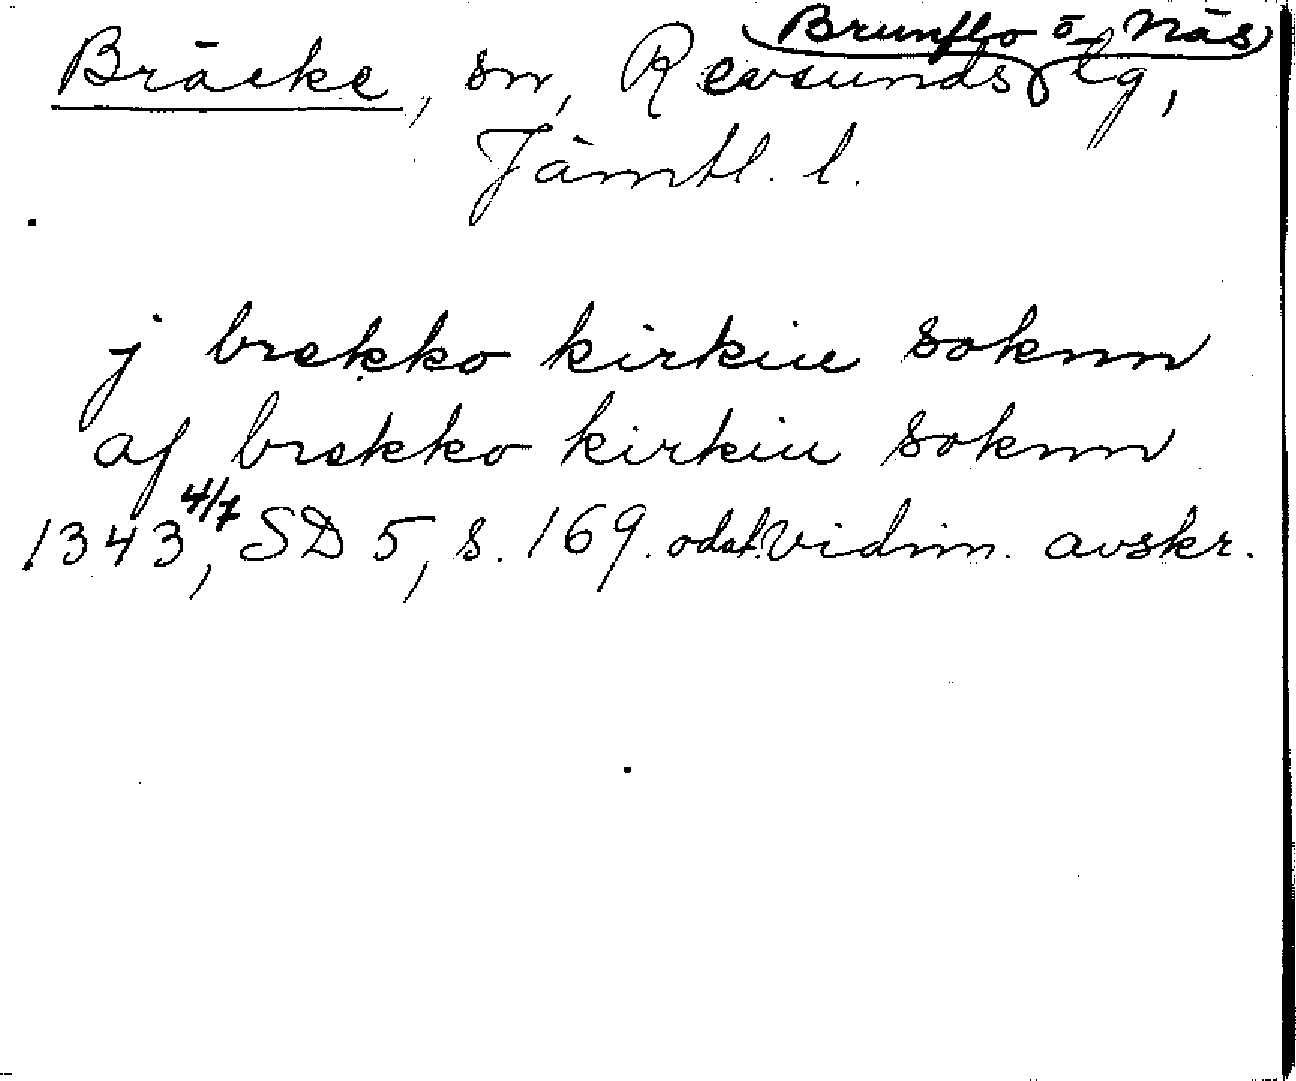 Brunflo o. Näs
Bräcke, sn, Revsunds tg,
Jämtl. l.
j brekko kirkiu soknn
af brekko kirkiu soknn
1343 4/7, SD 5, s. 169. odat. vidim. avskr.